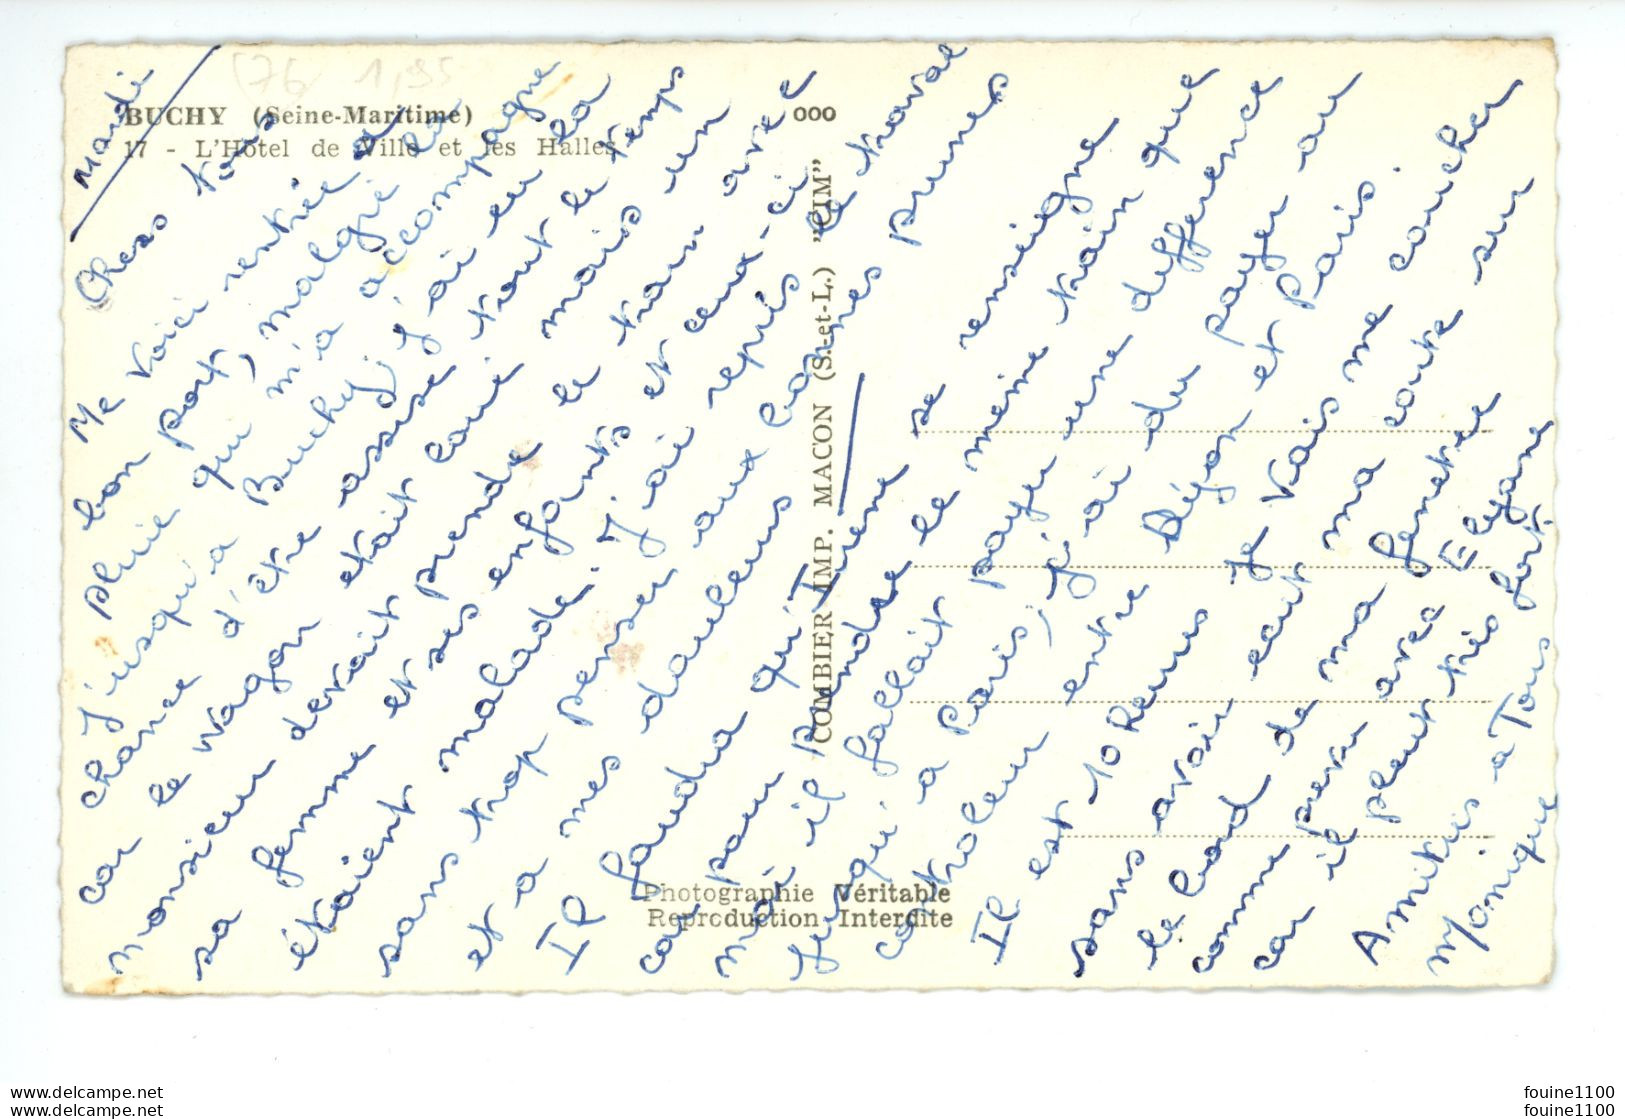 (76 1,95
BUCHY (Seine-Maritime)
17 - L'Hôtel de Ville et les Halles
000
COMBIER IMP. MACON (S.-et-L.) "CIM"
Photographie Véritable
Reproduction Interdite
Mardi
Chers tous
Me voici rentrée a
bon port, malgré la
pluie qui m'a accompagne
jusqu'a Buchy, j'ai eu la
chance d'être assise tout le temps
car le wagon était loué mais un
monsieur devait prendre le train avec
sa femme et ses enfants et ceux-ci
étaient malade. J'ai repris le travail
sans trop penser aux bonnes prunes
et a mes douleurs
Il faudra qu'Irene se renseigne
car pour prendre le même train que
moi il fallait payer une difference
jusqu'a Paris, j'ai du payer au
controleur entre Dijon et Paris.
Il est 10 heures je vais me coucher
sans avoir écrit ma conte sur
le bord de ma fenetre
comme prevu avec Elyane
car il pleut très fort.
Amitiés a Tous
Monique
fouine1100
fouine1100
www.delcampe.net
www.delcampe.net